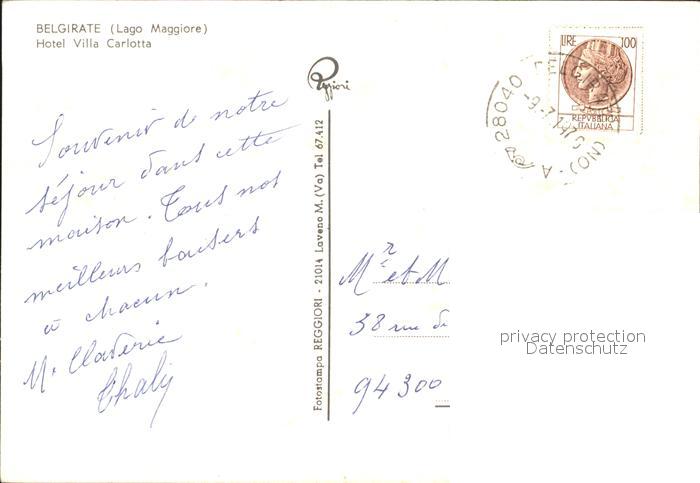 BELGIRATE (Lago Maggiore)
Hotel Villa Carlotta
Reggiori
LIRE 100
REPVBBLICA
ITALIANA
28040
-9.-7.197
(NO)
Souvenir de notre
séjour dans cette
maison. Tous nos
meilleurs baisers
à chacun.
M. Claverie
Fotostampa REGGIORI - 21014 Laveno M. (Va) Tel 67.412
Mr et M
38 rue de
94300
privacy protection
Datenschutz